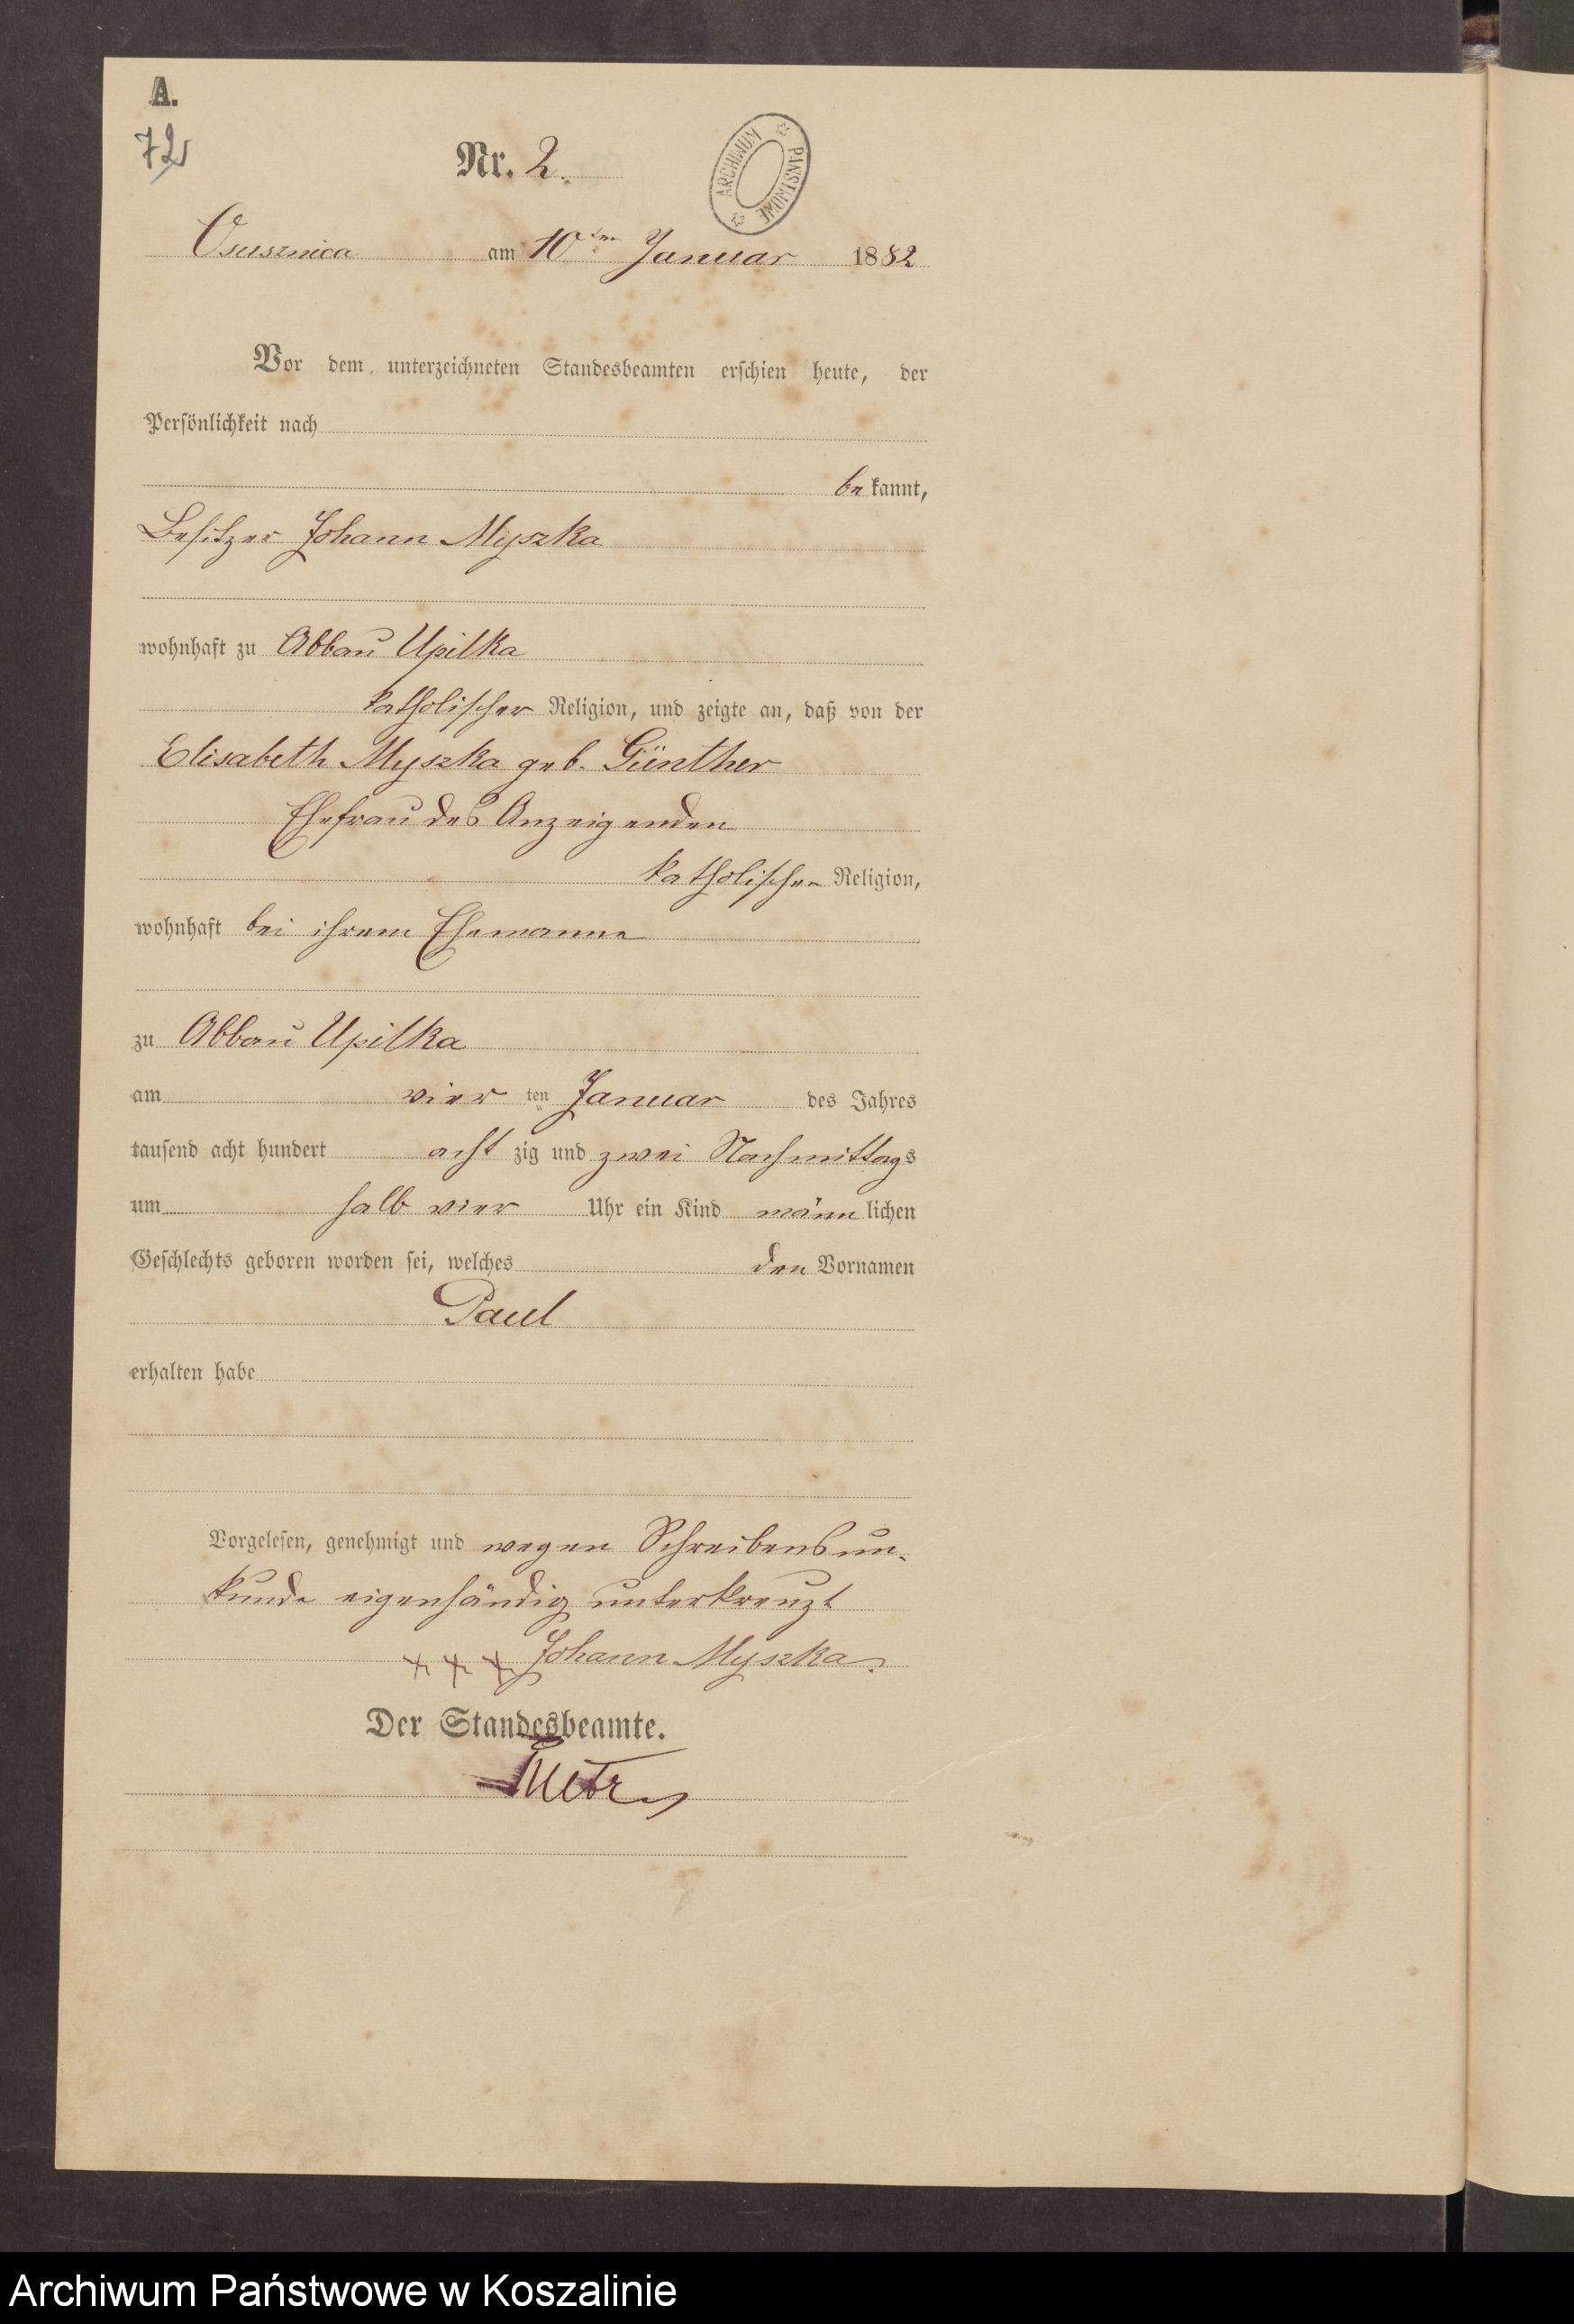 A.
72
Nr. 2.
ARCHIWUM PAŃSTWOWE
Osusznica am 10ten Januar 1882
Vor dem unterzeichneten Standesbeamten erschien heute, der
Persönlichkeit nach
bekannt,
Besitzer Johann Myszka
wohnhaft zu Abbau Upilka
katholischer Religion, und zeigte an, daß von der
Elisabeth Myszka geb. Günther
Ehefrau des Anzeigenden
katholischer Religion,
wohnhaft bei ihrem Ehemanne
zu Abbau Upilka
am vier ten Januar des Jahres
tausend acht hundert acht zig und zwei Nachmittags
um halb vier Uhr ein Kind männlichen
Geschlechts geboren worden sei, welches den Vornamen
Paul
erhalten habe
Vorgelesen, genehmigt und wegen Schreibensun-
kunde eigenhändig unterkreuzt
+ + + Johann Myszka.
Der Standesbeamte.
Archiwum Państwowe w Koszalinie